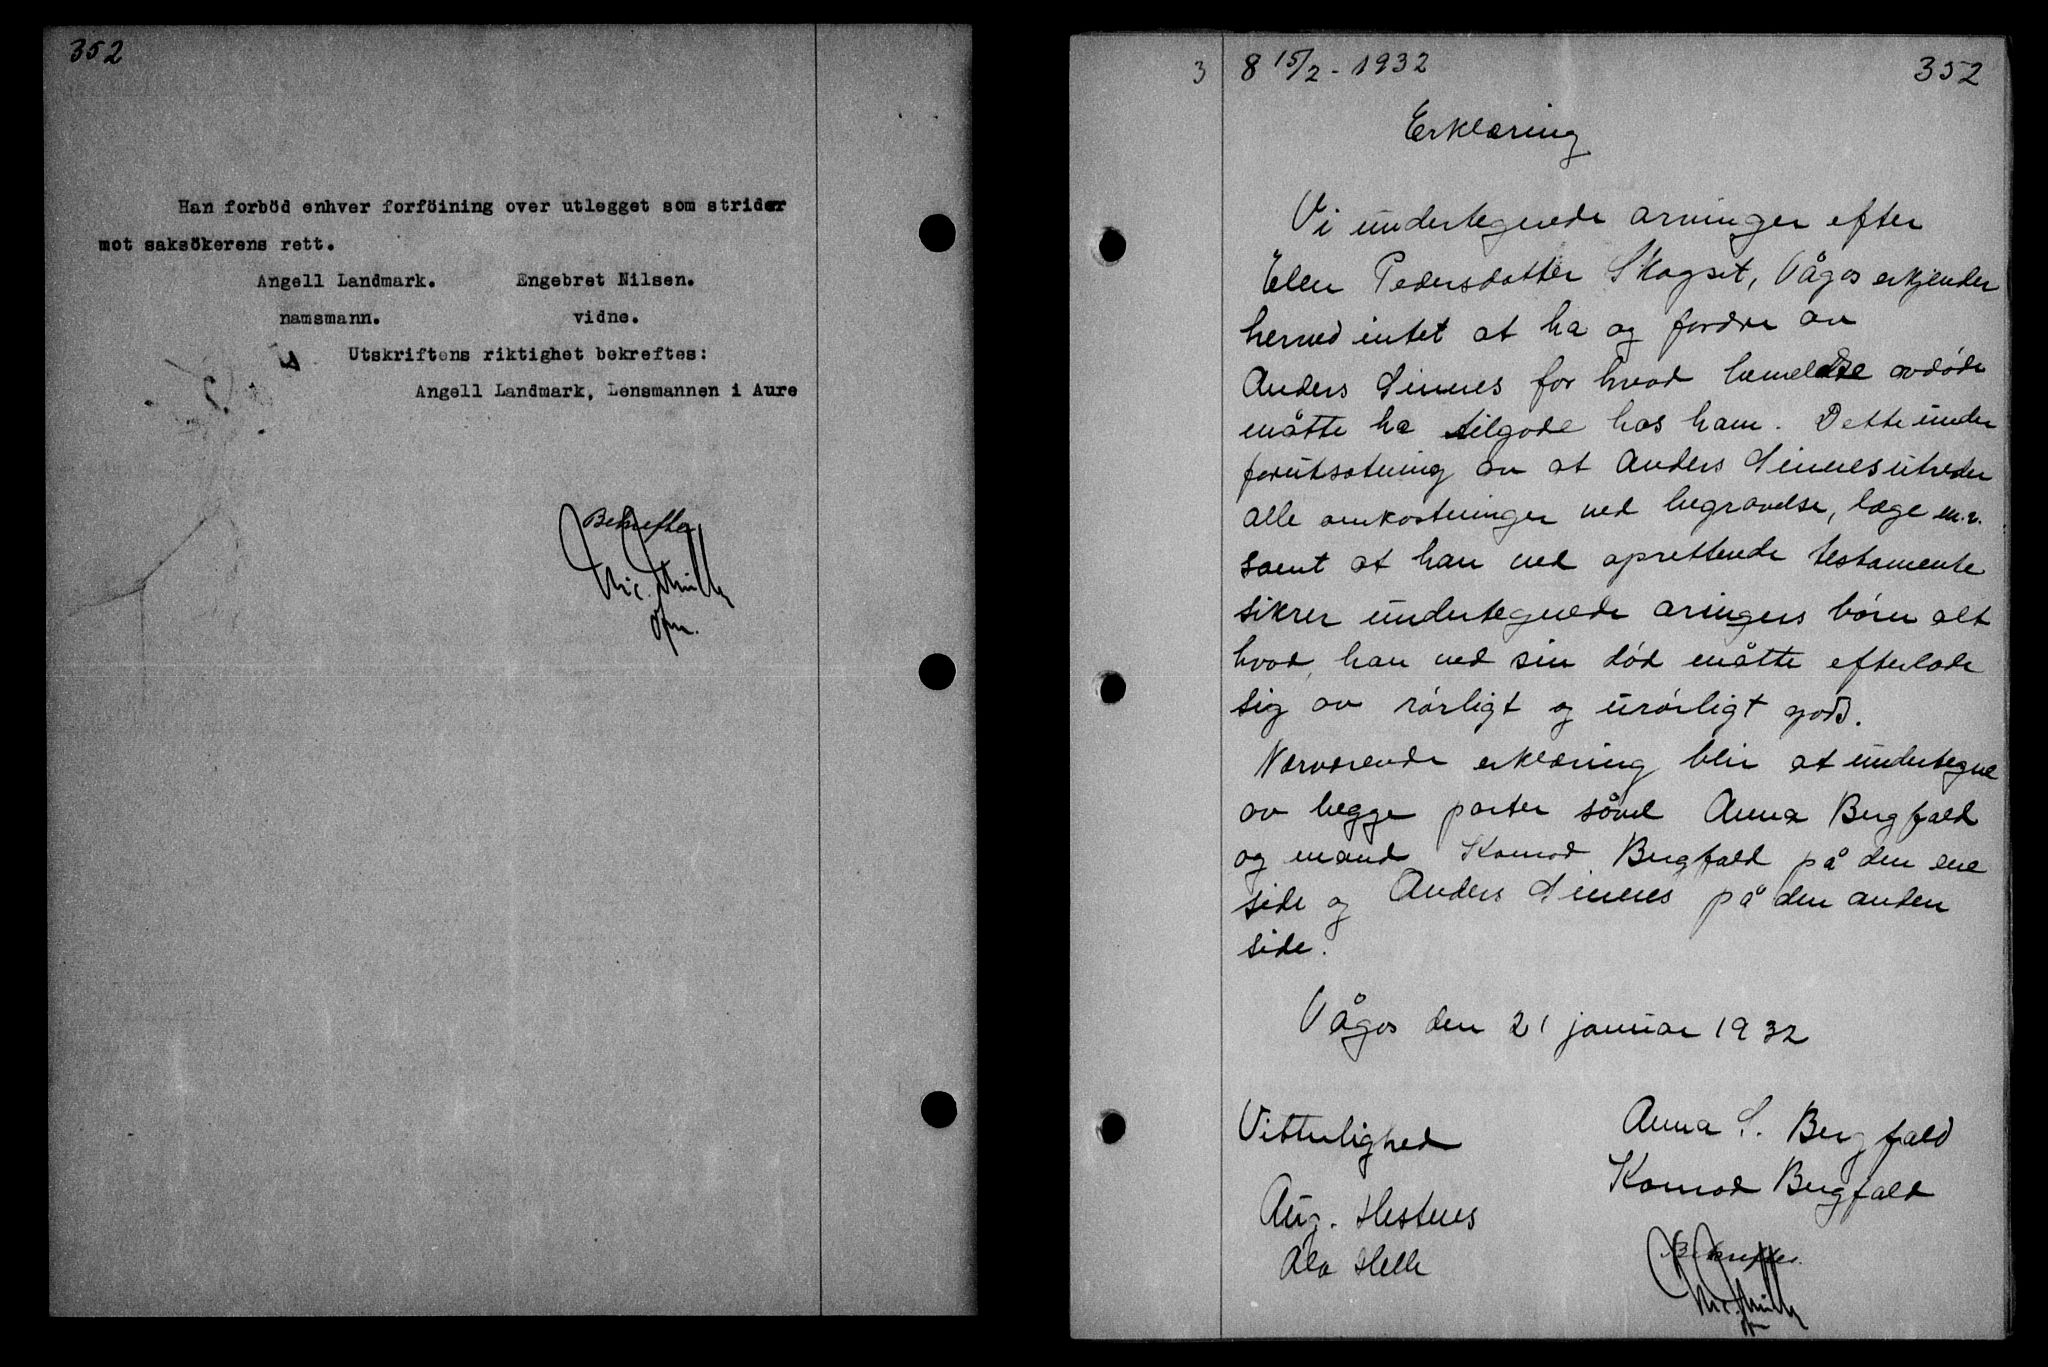 352
Han forböd enhver forföining over utlegget som strider
mot saksökerens rett.
Angell Landmark. Engebret Nilsen.
namsmann. vidne.
Utskriftens riktighet bekreftes:
Angell Landmark, Lensmannen i Aure
Bekreftes
3 8 15/2 - 1932 352
Erklæring
Vi undertegnede arvinger efter
Elen Pedersdatter Skogset, Vågos erkjender
herved intet at ha og fordre av
Anders Sinnes for hvad bemeldte avdøde
måtte ha tilgode hos ham. Dette under
forutsætning av at Anders Sinnes utreder
alle omkostninger ved begravelse, læge m.v.
samt at han ved oprettende testamente
sikrer undertegnede aringers børn alt
hvad han ved sin død måtte efterlade
sig av rørligt og urørligt gods.
Nærværende erklæring blir at undertegne
av begge parter såvel Anna Bergfald
og mand Konrad Bergfald på den ene
side og Anders Sinnes på den anden
side.
Vågos den 21 januar 1932
Vitterlighed
Anna S. Bergfald
Konrad Bergfald
Aug. Hestnes
Ola Helle
Bekreftes.